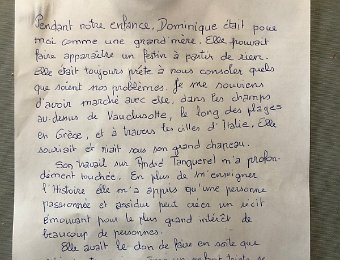 Pendant notre enfance, Dominique était pour
moi comme une grand'mère. Elle pouvait
faire apparaître un festin à partir de rien.
Elle était toujours prête à nous consoler quels
que soient nos problèmes. Je me souviens
d'avoir marché avec elle, dans les champs
au-dessus de Vauclusotte, le long des plages
en Grèce, et à travers les villes d'Italie. Elle
souriait et riait sous son grand chapeau.
Son travail sur André Tanquerel m'a profon-
dément touchée. En plus de m'enseigner
l'Histoire elle m'a appris qu'une personne
passionnée et assidue peut créer un récit
émouvant pour le plus grand intérêt de
beaucoup de personnes.
Elle avait le don de faire en sorte que